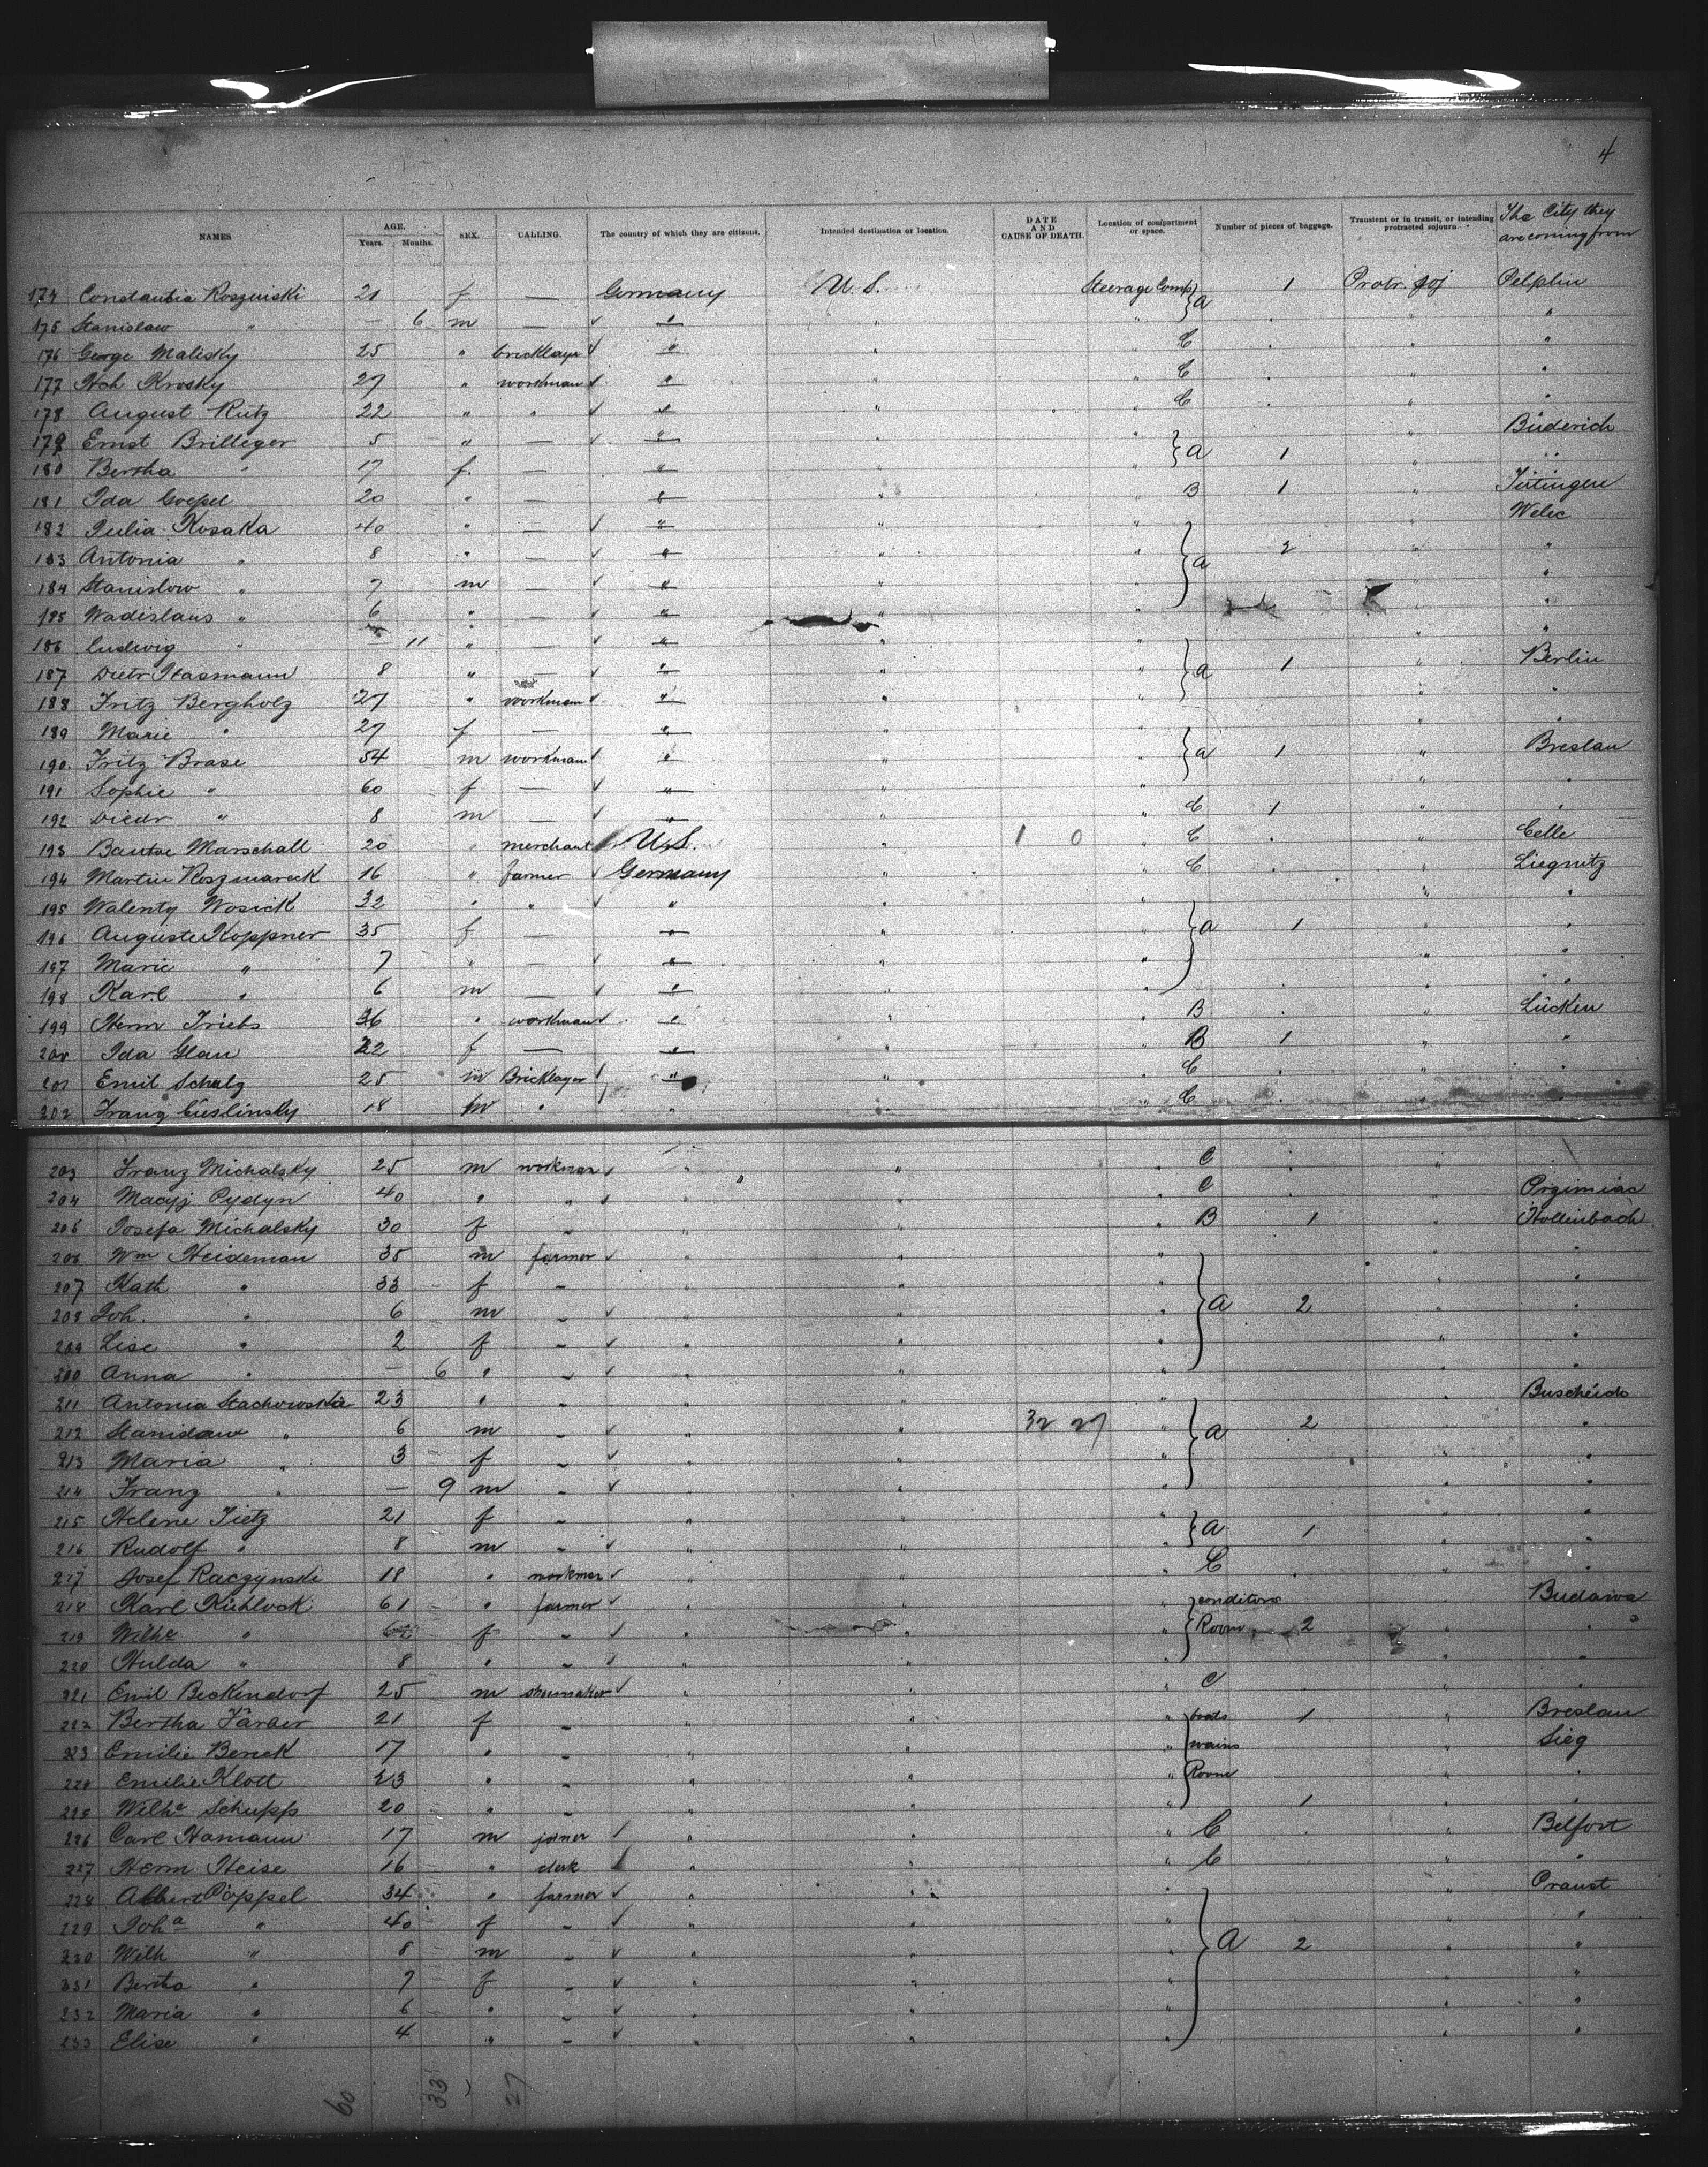 4
NAMES AGE. Years. Months. SEX. CALLING. The country of which they are citizens. Intended destination or location. DATE AND CAUSE OF DEATH. Location of compartment or space. Number of pieces of baggage. Transient or in transit, or intending protracted sojourn The City they are coming from
174 21 f — Germany U.S. Steerage Comp a 1 Protr. Soj Pelplin
175 Stanislaw " — 6 m — " " " "
176 George Malisky 25 " bricklayer " " C " "
177 Krosky 27 " workman " " C " "
178 August Rutz 22 " " " " C " "
179 Ernst Brilleger 5 " — " " a 1 " Büderich
180 Bertha " 17 f. — " " " "
181 Ida Goepel 20 " — " " B 1 "
182 Julia Kosaka 40 " — " " a 2 " Welec
183 Antonia " 8 " — " " " "
184 Stanislow " 7 m — " " " "
185 Wadislaus " 6 " — " " " "
186 Ludwig " — 11 " — " " " "
187 Dietr Hasmann 8 " — " " a 1 " Berlin
188 Fritz Bergholz 27 " workman " " " "
189 Marie " 27 f — " " " "
190. Fritz Brase 54 m workman " " a 1 " Breslau
191 Sophie " 60 f — " " " "
192 Diedr " 8 m — " " C 1 " "
193 Marschall 20 " merchant U.S. " 1 0 C " Celle
194 Martin Roszmareck 16 " farmer Germany " C " Liegnitz
195 Walenty Wosick 32 " " " " " "
196 Auguste Koppner 35 f — " " a 1 " "
197 Marie " 7 " — " " " "
198 Karl " 6 m — " " " "
199 Herm Triebs 36 " workman " " B " Lücken
200 Ida Glau 22 f — " " B 1 " "
201 Emil Schulz 25 m Bricklayer " " C " "
202 Franz Cieslinsky 18 m " " " C " "
203 Franz Michalsky 25 m workman " " C " "
204 Macyj Pydyn 40 " " " " C "
205 Josefa Michalsky 30 f " " " B 1 " Hollenbach
206 Wm Heideman 35 m farmer " " " "
207 Kath " 33 f — " " A 2 " "
208 Joh. " 6 m — " " " "
209 Lise " 2 f — " " " "
Anna " — 6 " — " " " "
211 Antonia Stachowska 23 " — " " "
212 Stanislaw " 6 m — " " 32 27 a 2 " "
213 Maria " 3 f — " " " "
214 Franz " — 9 m — " " " "
215 Helene Tietz 21 f — " " a 1 " "
216 Rudolf " 8 m — " " " "
217 Josef Raczynski 18 " workman " " C " "
218 Karl Kühlvock 61 " farmer " " conditors Room 2 " Budawa
219 Wilhe " 62 f — " " " "
220 Hulda " 8 " — " " " "
221 Emil Beckendorf 25 m shoemaker " " C " "
222 Bertha Färber 21 f — " " boats wains Room 1 " Breslau
223 Emilie Berick 17 " — " " " Sieg
Emilie Klott 23 " — " " " "
225 Wilhe Schupp 20 " — " " 1 " "
226 Carl Hamann 17 m joiner " " C " Belfort
227 Herm Heise 16 " clerk " " C " "
228 Albert Pöppel 34 " farmer " " " Praust
229 Joha " 40 f — " " A 2 " "
230 Wilh " 8 m — " " " "
231 Bertha " 7 f — " " " "
232 Maria " 6 " — " " " "
233 Elise " 4 " — " " " "
60 33 27